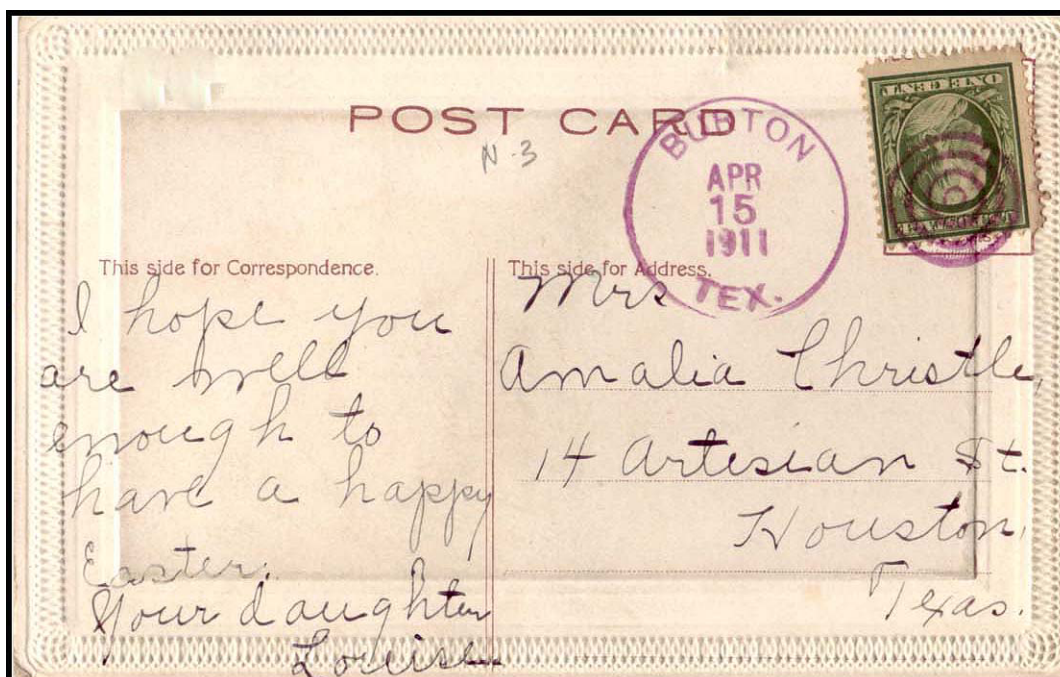 POST CARD
N-3
BURTON
APR
15
1911
TEX.
ONE CENT
This side for Correspondence.
I hope you
are well
enough to
have a happy
Easter.
Your daughter
Louise
This side for Address.
Mrs
Amalia Christle,
14 Artesian St.
Houston,
Texas.